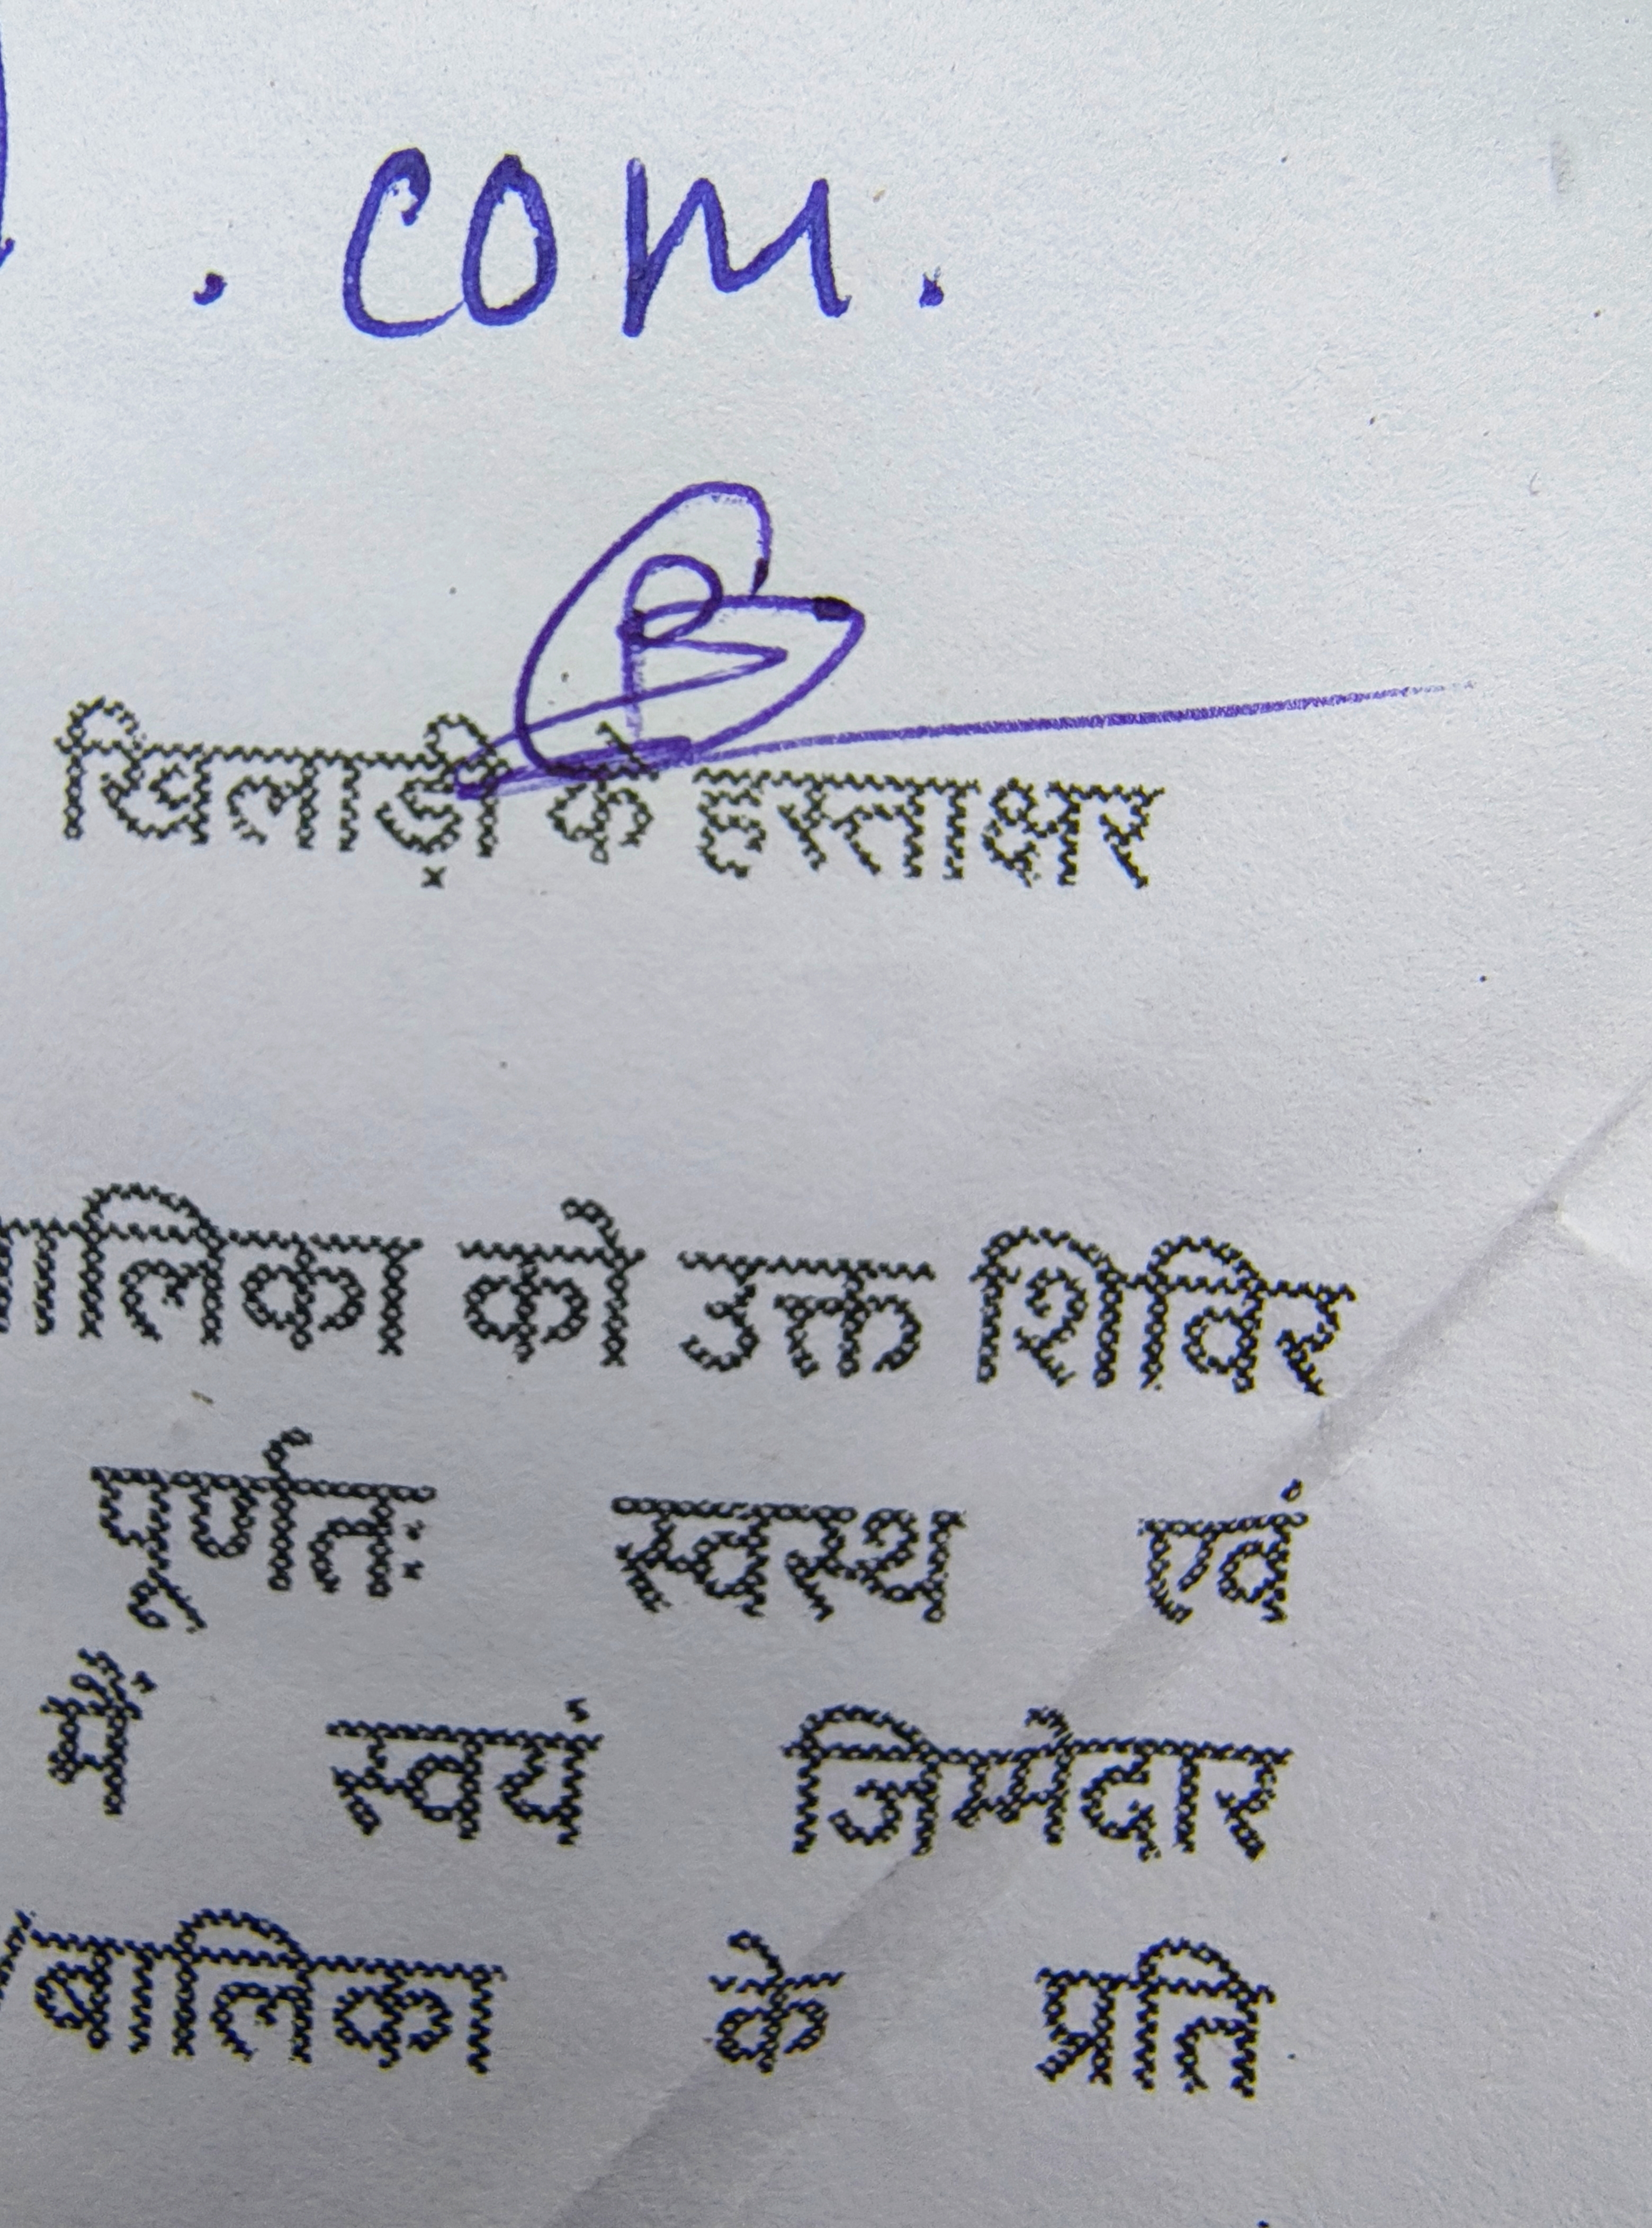 . com.
खिलाड़ी के हस्ताक्षर
ालिका को उक्त शिविर
पूर्णतः स्वस्थ एवं
में स्वयं जिम्मेदार
/बालिका के प्रति